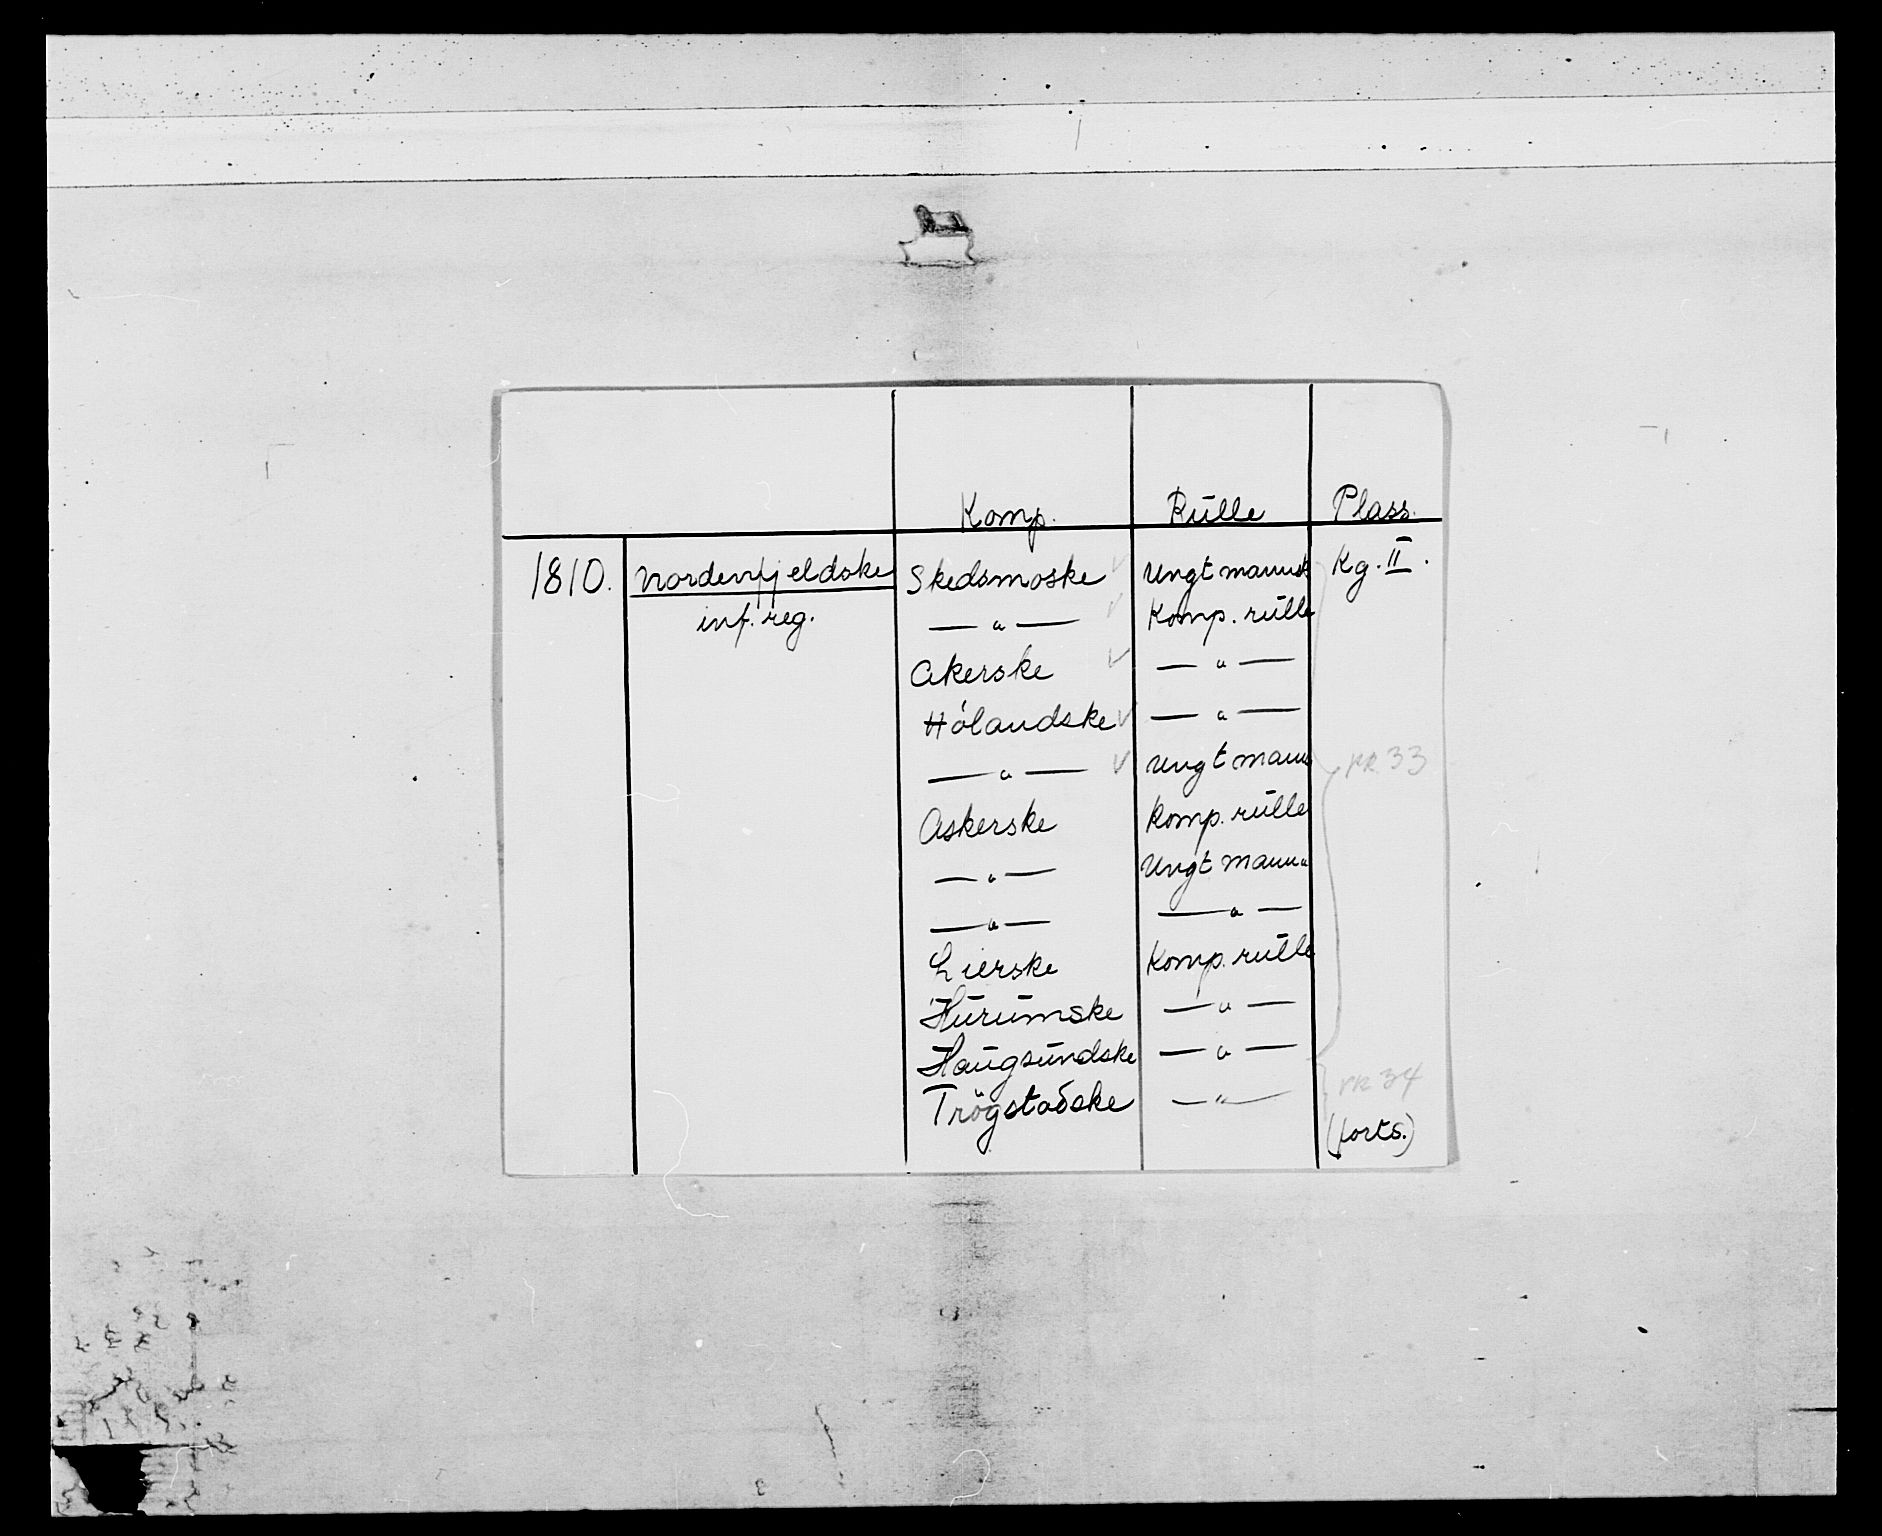 Komp. Rulle Plass.
1810. Nordenfjeldske Skedsmoske ✓ Ungt mannsk Kg. II.
inf. reg. — " — ✓ Komp. rulle
Akerske ✓ — " —
Hólandske ✓ — " —
— " — ✓ Ungt mann
PK 33
Askerske Komp. rulle
— " — Ungt mann
— " — — " —
Lierske Komp. rulle
Hurumske — " —
Haugsundske — " —
PK 34
Trögstadske — " —
(forts.)